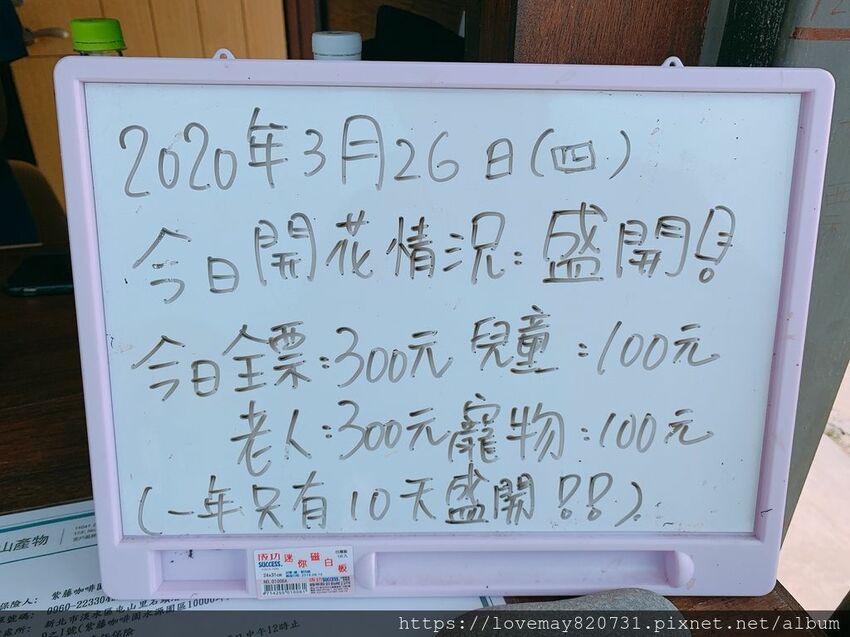 2020年3月26日(四)
今日開花情況:盛開!
今日全票:300元 兒童:100元
老人:300元寵物:100元
(一年只有10天盛開!!)
成功 迷你磁白板
SUCCESS
24x31cm
NO. 01006A
山產物
保險人: 紫藤咖啡園
0960-22330
新北市淡水區屯山里石頭
https://lovemay820731.pixnet.net/album